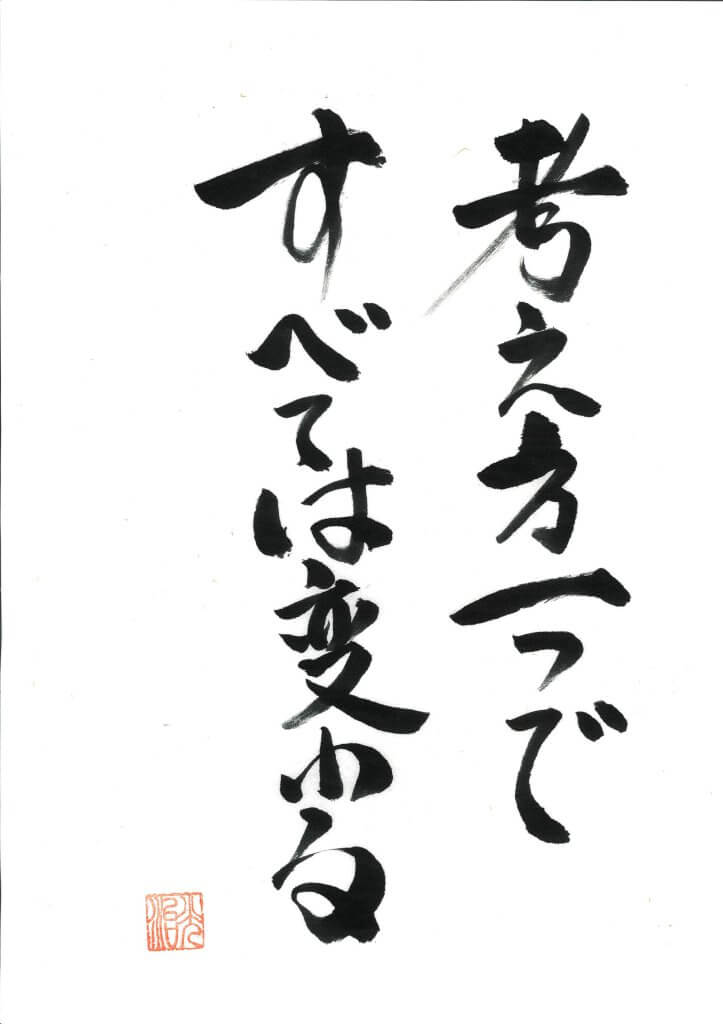 考え方一つで
すべては変わる